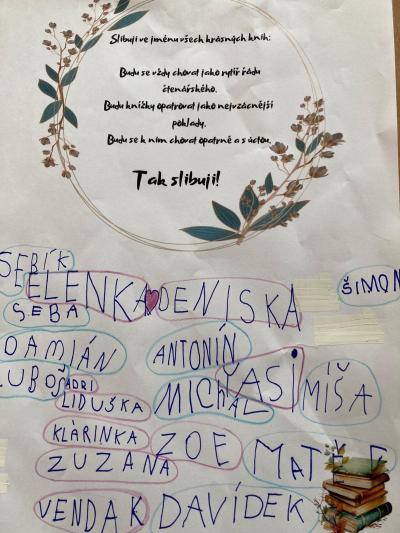 Slibuji ve jménu všech krásných knih:
Budu se vždy chovat jako rytíř řádu
čtenářského.
Budu knížky opatrovat jako nejvzácnější
poklady.
Budu se k nim chovat opatrně a s úctou.
Tak slibuji!
SEBÍK
ELENKA DENISKA ŠIMON
SEBA
DAMIÁN ANTONÍN
LUBOŠ ADRI MICHAL JASI MÍŠA
LIDUŠKA
KLÁRINKA ZOE
ZUZANA
VENDA K DAVÍDEK